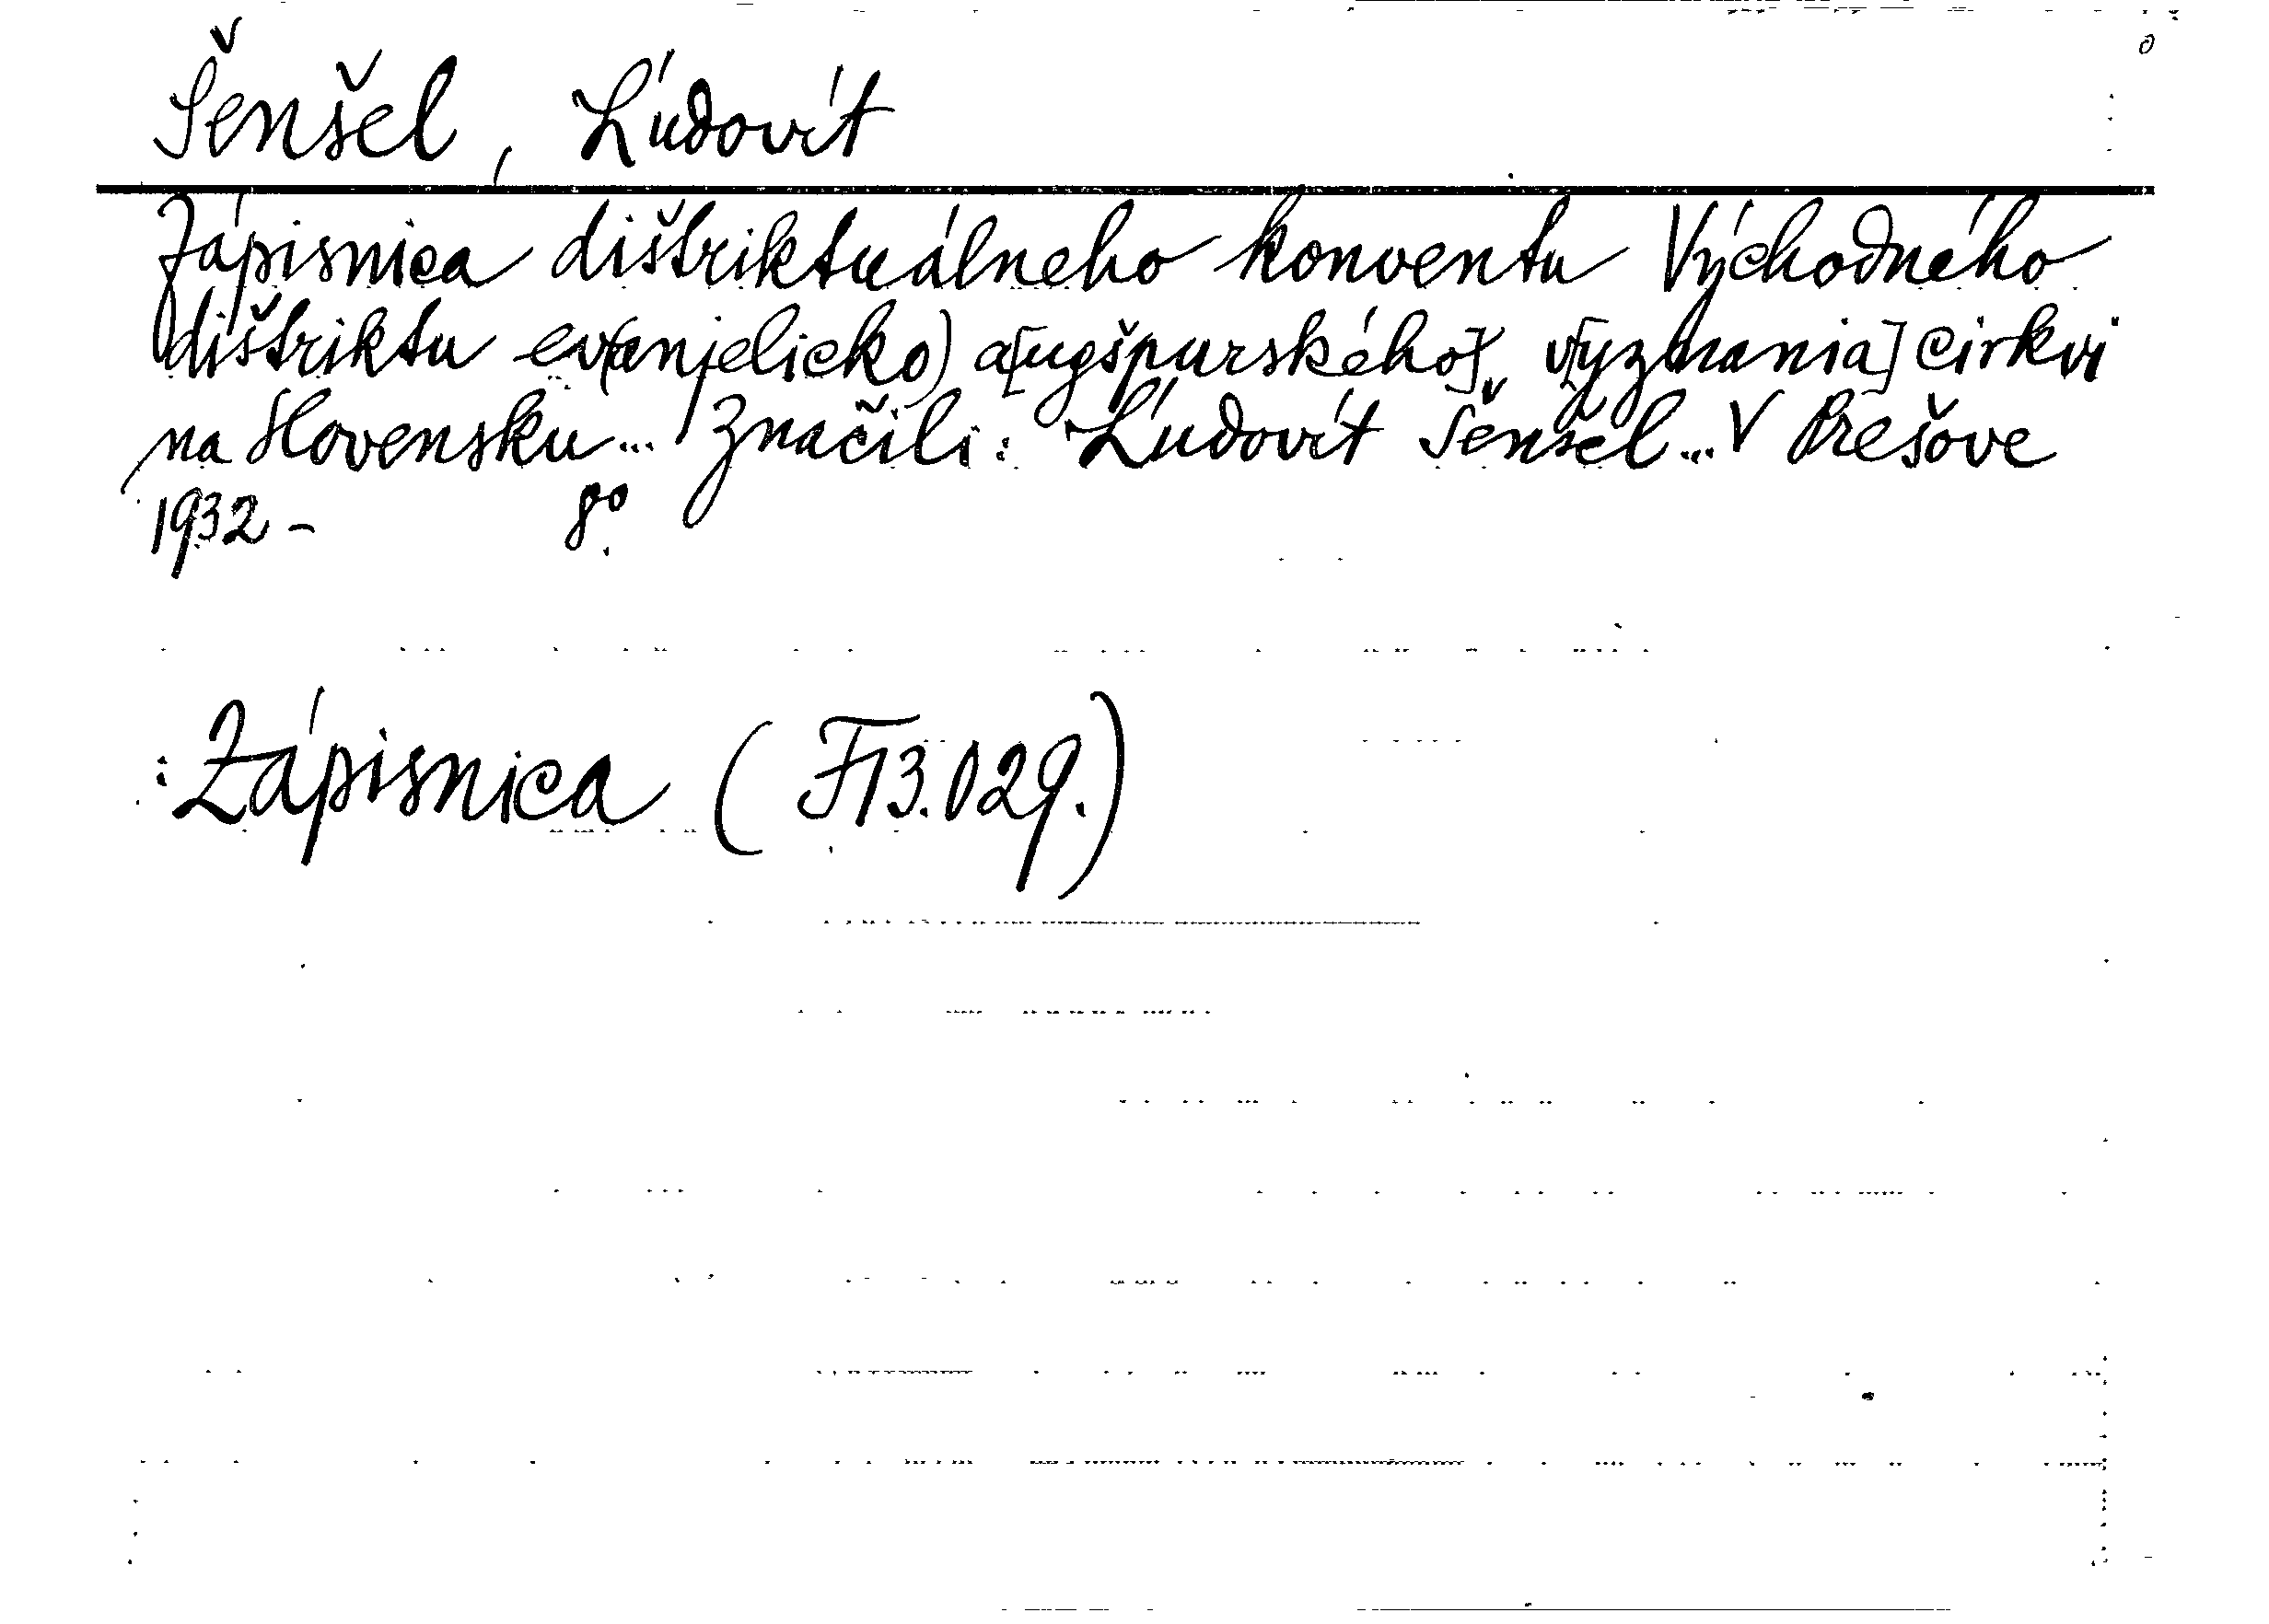 Šenšel, Ľudovít
Zápisnica dištriktuálneho konventu Východného
dištriktu ev(anjelicko) a[ugšpurského] v[yznania] cirkvi
na Slovensku... Značili: Ľudovít Šenšel... V Prešove
1932 - 8°
Zápisnica (F13.029.)